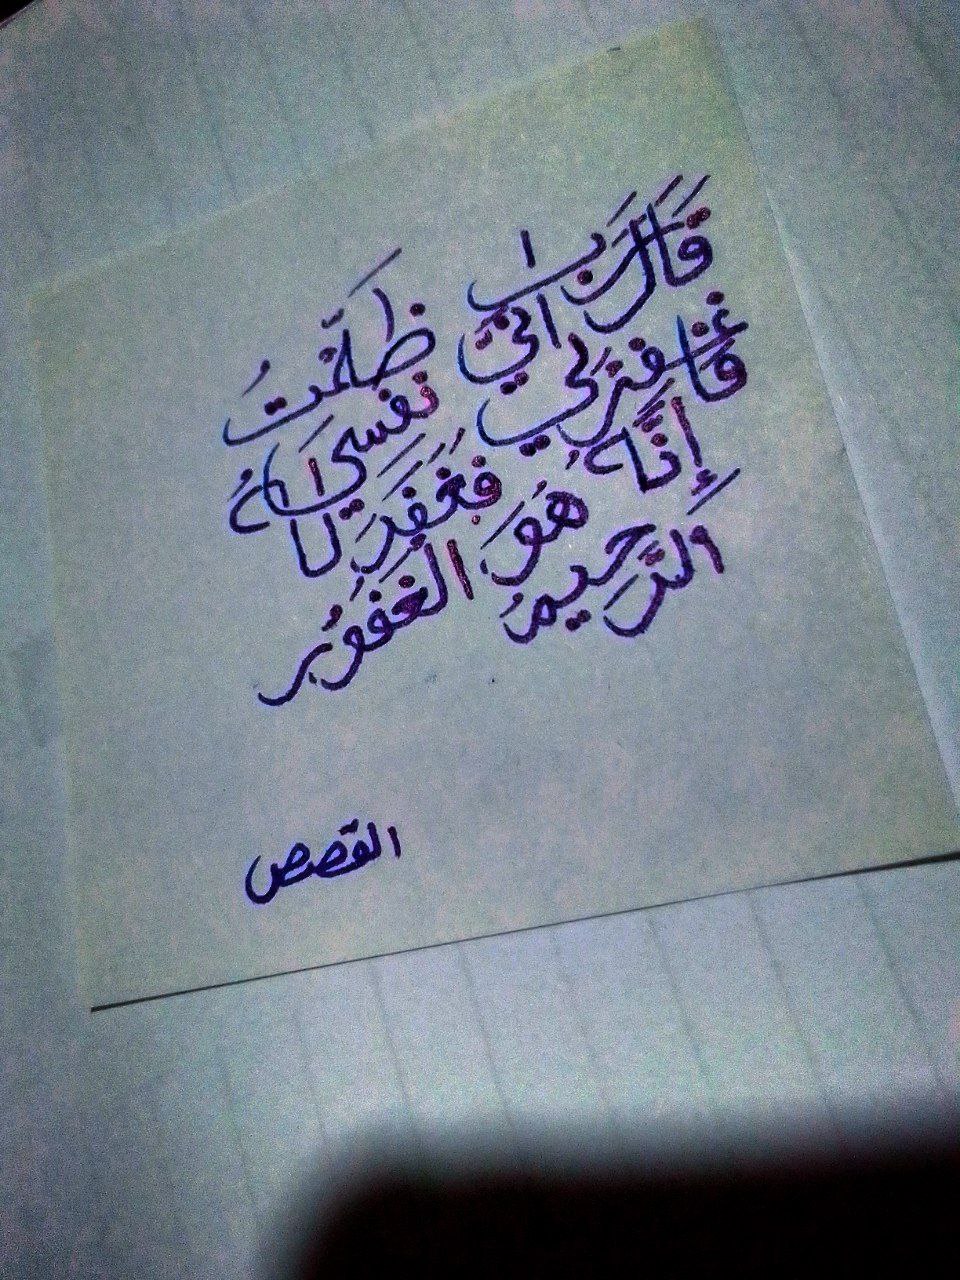 قَالَ رَبِّ إِنِّي ظَلَمْتُ نَفْسِي
فَاغْفِرْ لِي فَغَفَرَ لَهُ
إِنَّهُ هُوَ الْغَفُورُ
الرَّحِيمُ
القصص